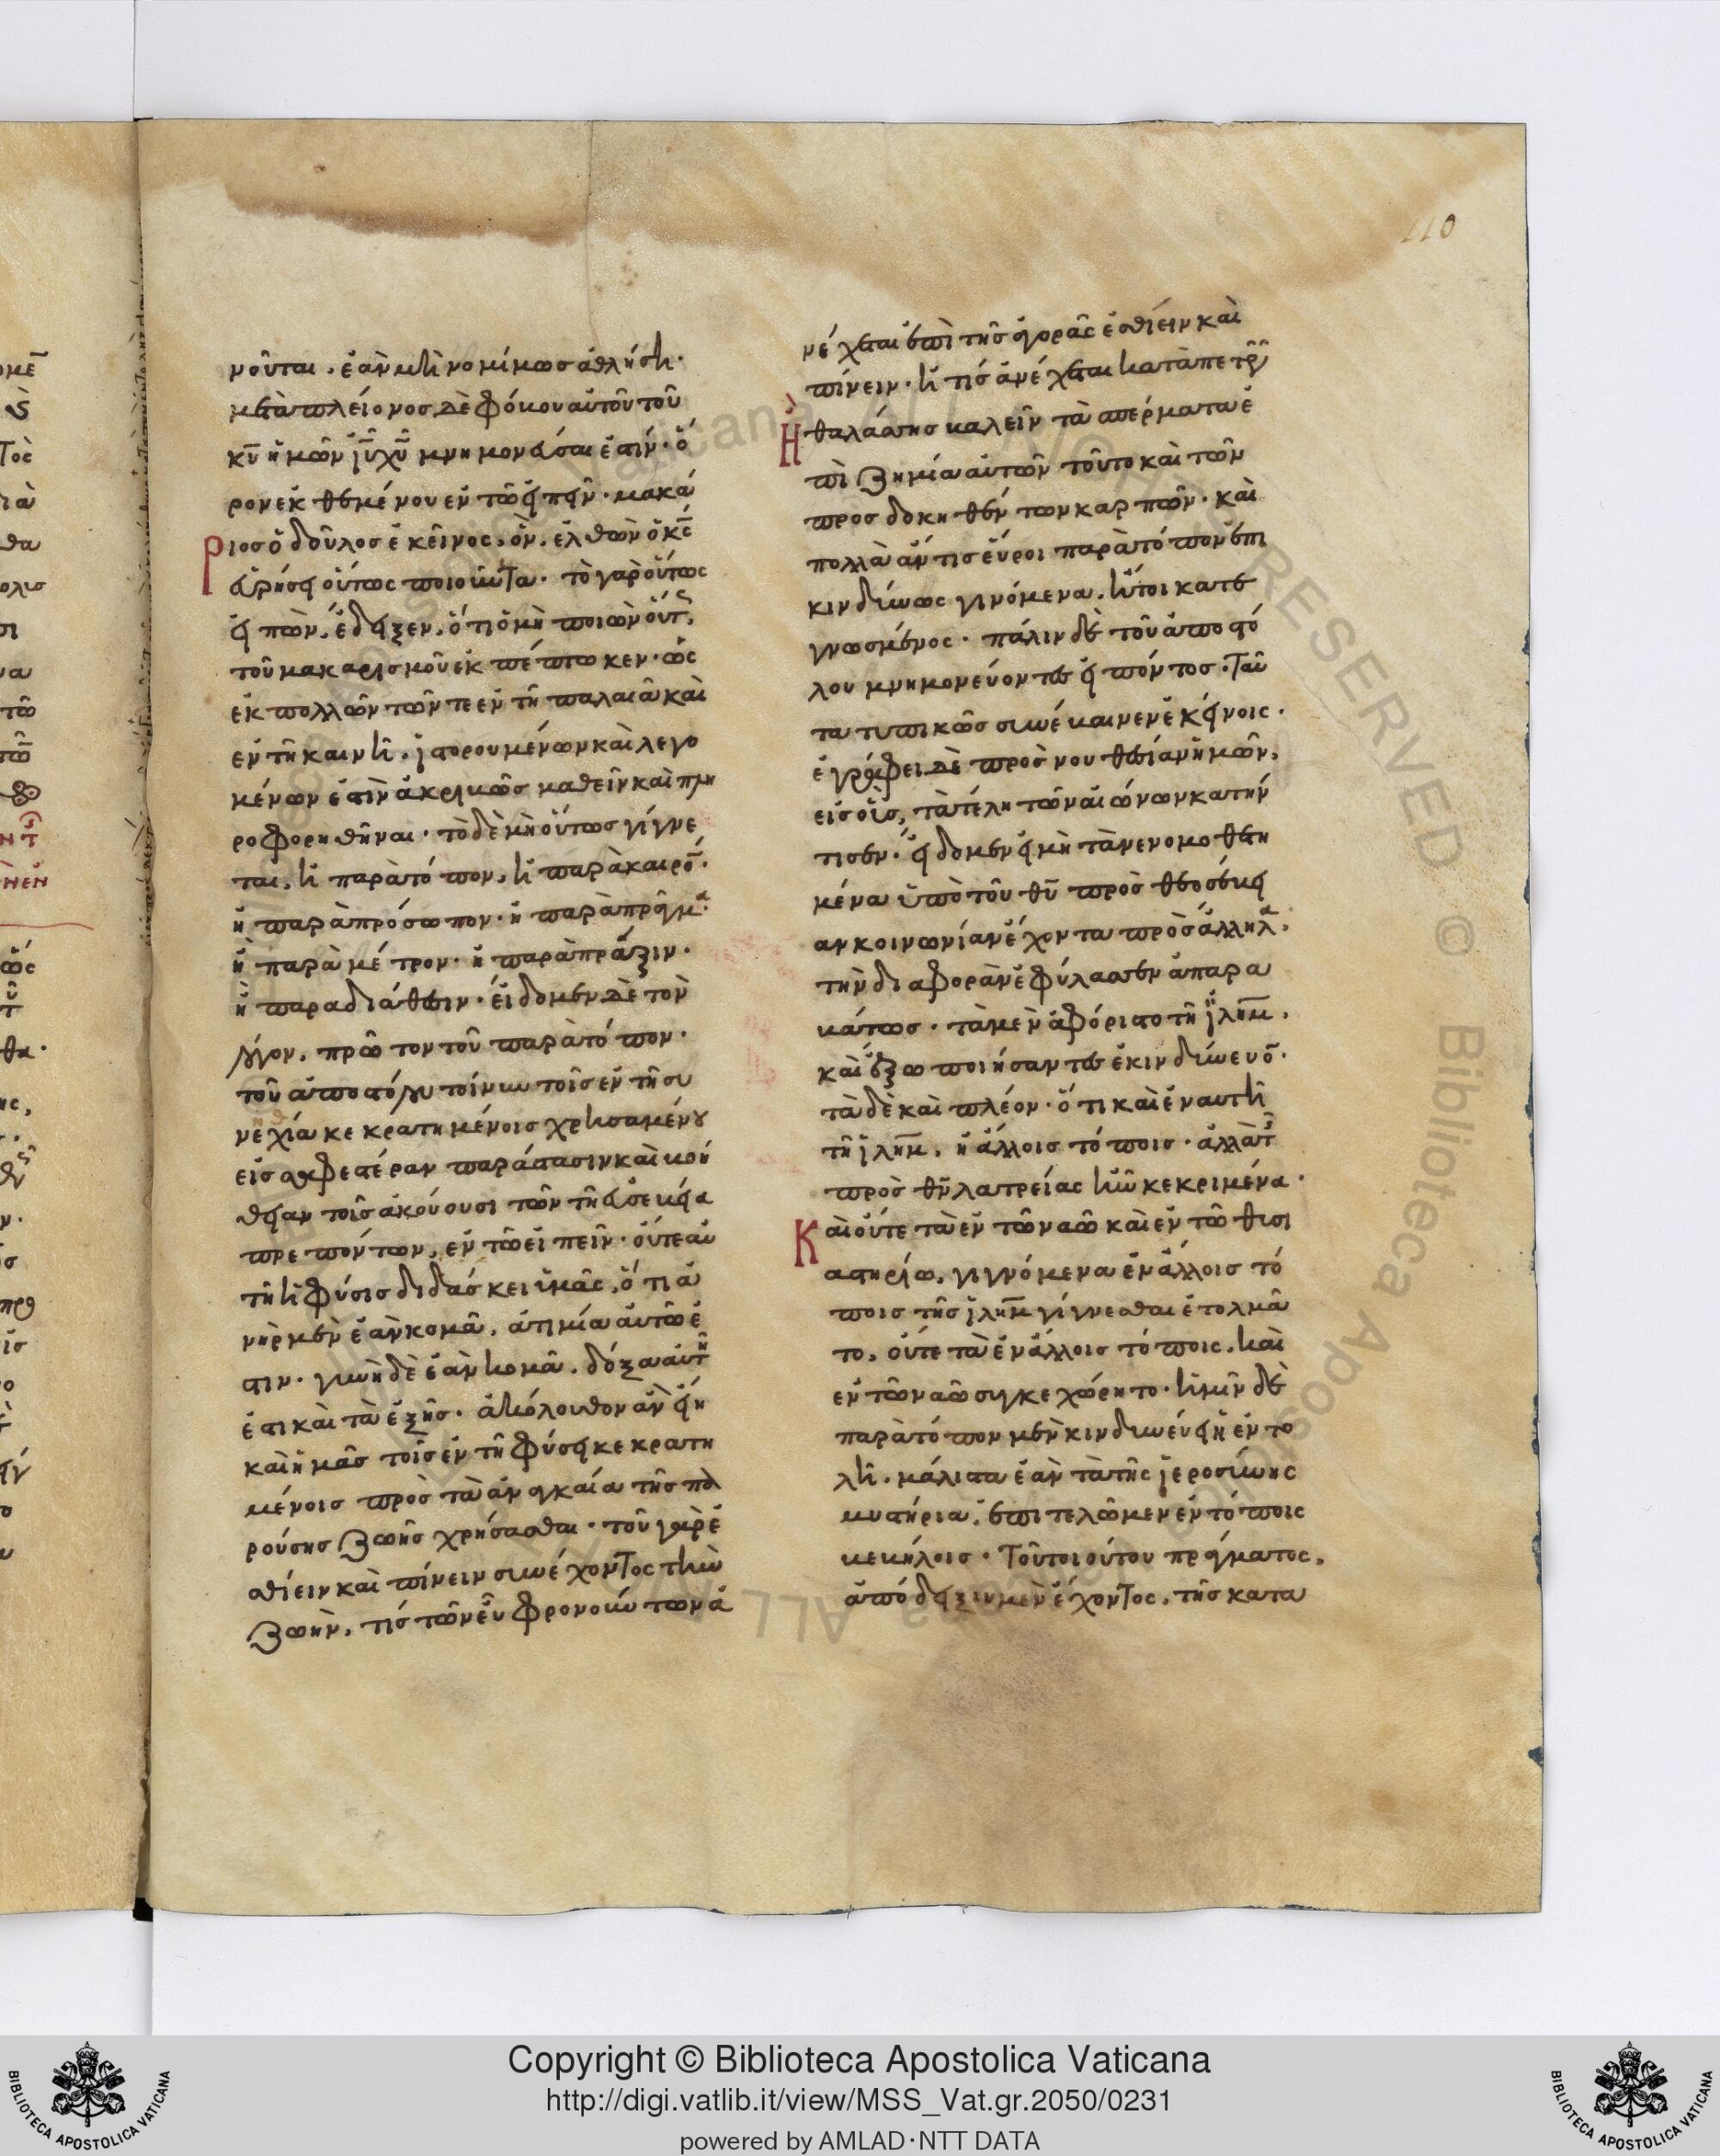 110
νοῦται. ἐὰν μὴ νομίμως ἀθλήση·
μετὰ πλείονος δὲ φόβου αὐτοῦ τοῦ
κῡ ἡμῶν ἰῡ χῡ μνημονεῦσαι ἐστίν· ὅ
ρον ἐκθεμένου ἐν τῶ εἰπεῖν· μακά
ριος ὁ δοῦλος ἐκεῖνος, ὃν, ἐλθὼν ὁ κς̄
εὑρήσει οὕτως ποιοῦντα· τὸ γὰρ οὕτως
εἰπὼν, ἔδειξεν, ὅτι ὁ μὴ ποιῶν οὕτς,
τοῦ μακαρισμοῦ ἐκπέπτωκεν· ὡς
ἐκ πολλῶν τῶν τε ἐν τῆ παλαιᾶ καὶ
ἐν τῆ καινῆ, ἱστορουμένων καὶ λεγο
μένων ἐστὶν ἀκριβῶς μαθεῖν καὶ πλη
ροφορηθῆναι· τὸ δὲ μὴ οὕτως γίγνε
ται, ἢ παρὰ τόπον, ἢ παρὰ καιρό·
ἢ παρὰ πρόσωπον· ἢ παρὰ πρᾶγμα·
ἢ παρὰ μέτρον· ἢ παρὰ πρᾶξιν·
ἢ παρὰ διάθεσιν· εἴδομεν δὲ τὸν
λόγον, πρῶτον τοῦ παρὰ τόπον·
τοῦ ἀποστόλου τοίνυν τοῖς ἐν τῆ συ
νηχία κεκρατημένοις χρησαμένου
εἰς σαφεστέραν παράστασιν καὶ βοή
θειαν τοῖς ἀκούουσι τῶν τῆ εὐσεβεία
πρεπόντων, ἐν τῶ εἰπεῖν· οὔτε αὐ
τὴ ἡ φύσις διδάσκει ὑμᾶς, ὅτι ἀ
νὴρ μὲν ἐὰν κομᾶ, ἀτιμία αὐτῶ ἐ
στιν· γυνὴ δὲ ἐὰν κομᾶ, δόξα αὐτῆ
ἐστι καὶ τὰ ἑξῆς· ἀκόλουθον ἂν εἴη
καὶ ἡμᾶς τοῖς ἐν τῆ φύσει κεκρατη
μένοις πρὸς τὰ ἀναγκαία τῆς πα
ρούσης ζωῆς χρήσασθαι· τοῦ γὰρ ἐ
σθίειν καὶ πίνειν συνέχοντος τὴν
ζωὴν, τίς τῶν εὖ φρονούντων ἀ
νέχεται ἐπὶ τῆς ἀγορᾶς ἐσθίειν καὶ
πίνειν· ἢ τίς ἀνέχεται κατὰ πετρῶν
Ἢ θαλάσσης βαλεῖν τὰ σπέρματα ἐ
πὶ ζημία αὐτῶν τοῦτο καὶ τῶν
προσδοκηθέντων καρπῶν· καὶ
πολλὰ ἄν τις εὕροι παρὰ τόπον ἐπι
κινδύνως γινόμενα, ἤτοι κατε
γνωσμένος· πάλιν δὲ τοῦ ἀποστό
λου μνημονεύοντες εἰπόντος· ταῦ
τα τυπικῶς συνέβαινεν ἐκείνοις·
ἐγράφει δὲ πρὸς νουθεσίαν ἡμῶν,
εἰς οὓς, τὰ τέλη τῶν αἰώνων κατήν
τισεν· εἴδομεν εἰ μὴ τὰ νενομοθετη
μένα ὑπὸ τοῦ θῡ πρὸς θεοσέβει
αν κοινωνίαν ἔχοντα πρὸς ἄλληλα,
τὴν διαφορὰν ἐφύλασσεν ἀπαρα
βάτως· τὰ μὲν ἀφόριστο τῆ ἰλημ̄,
καὶ ἔξω ποιήσαντες ἐκινδύνευο̄·
τὰ δὲ καὶ πλέον· ὅτι καὶ ἐν αυτῆ
τῆ ἰλημ̄, ἢ ἄλλοις τόποις· ἀλλὰ τ
πρὸς θν̄ λατρείας ἦν κεκριμένα·
Καὶ οὔτε τὰ ἐν τῶ ναῶ καὶ ἐν τῶ θυσι
αστηρίω, γιγνόμενα ἐν ἄλλοις τό
ποις τῆς ἰλημ̄ γίγνεσθαι ἐτολμᾶ
το, οὔτε τὰ ἐν ἄλλοις τόποις, καὶ
ἐν τῶ ναῶ συγκεχώρητο· ἡμῖν δὲ
παρὰ τόπον μὲν κινδυνεύει ἡ ἐντο
λὴ, μάλιστα ἐὰν τὰ τῆς ἱεροσύνης
μυστήρια, ἐπιτελῶμεν ἐν τόποις
βεβήλοις· τοῦ τοιούτου πράγματος,
ἀπόδειξιν μὲν ἔχοντος, τῆς κατα
Copyright © Biblioteca Apostolica Vaticana
http://digi.vatlib.it/view/MSS_Vat.gr.2050/0231
powered by AMLAD·NTT DATA